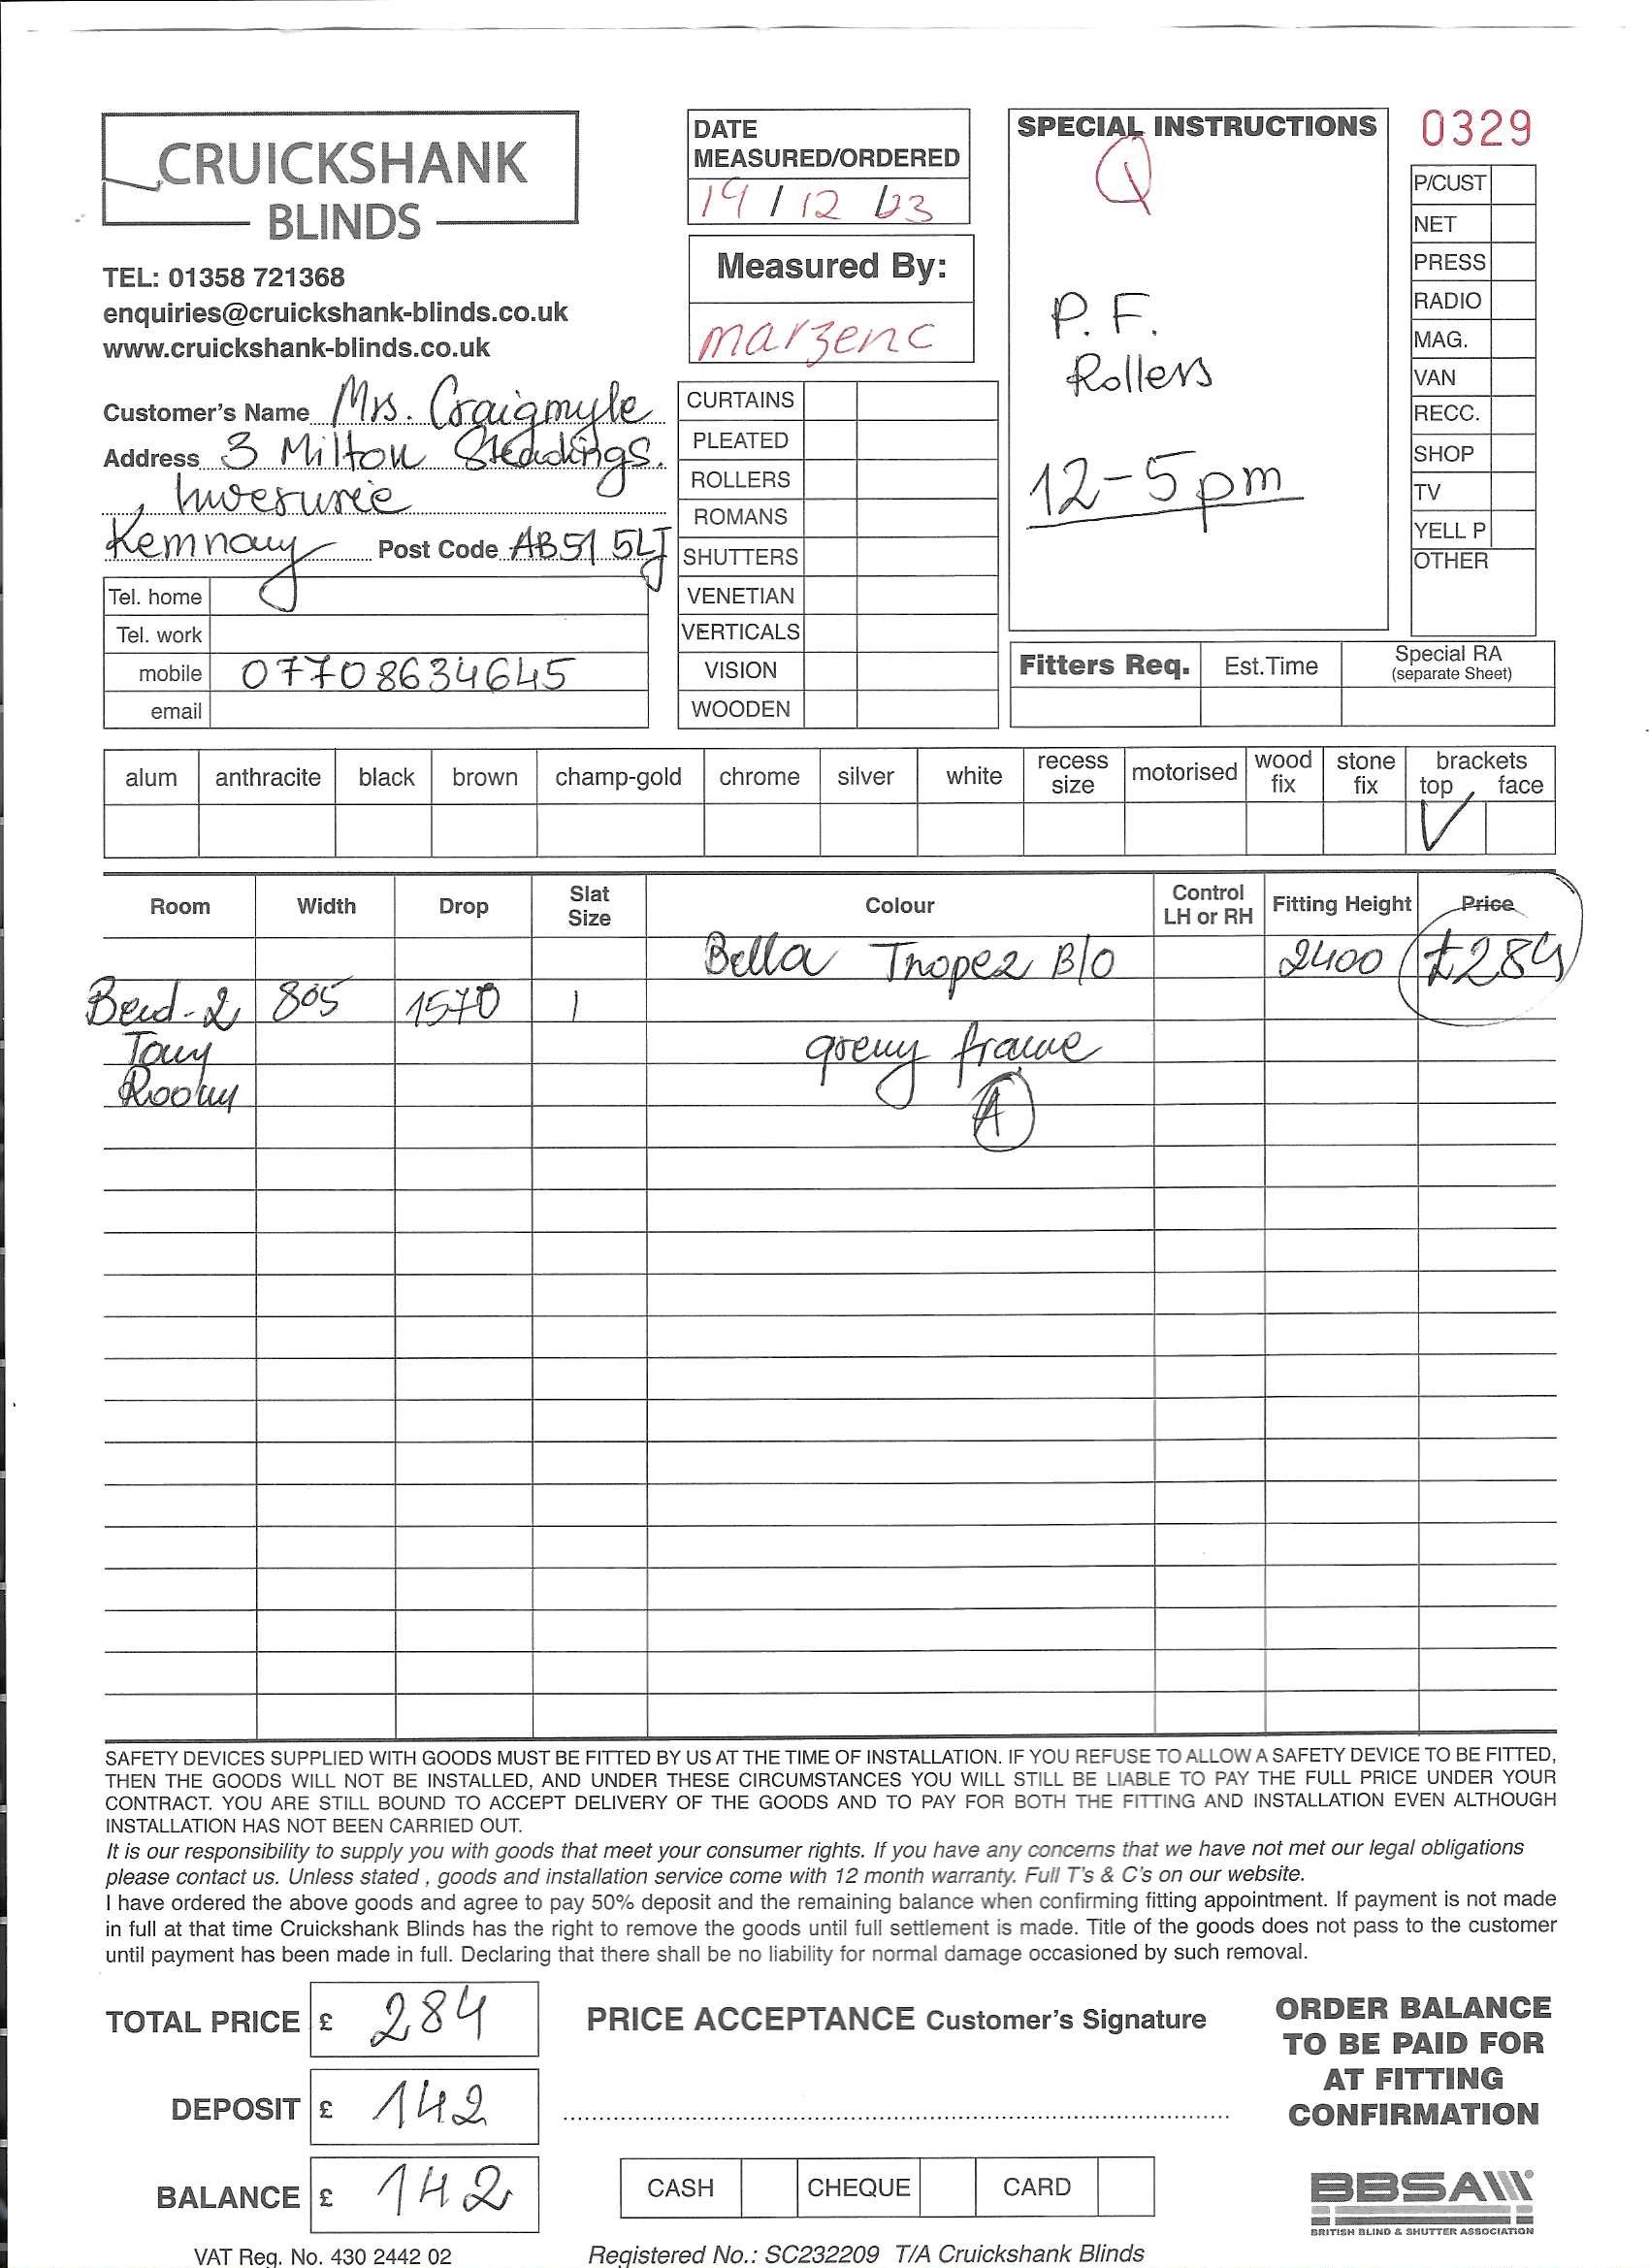 CRUICKSHANK
BLINDS
TEL: 01358 721368
enquiries@cruickshank-blinds.co.uk
www.cruickshank-blinds.co.uk
DATE
MEASURED/ORDERED
19 / 12 / 23
Measured By:
marzenc
SPECIAL INSTRUCTIONS
Q
P. F.
Rollers
12-5pm
0329
P/CUST
NET
PRESS
RADIO
MAG.
VAN
RECC.
SHOP
TV
YELL P
OTHER
Customer's Name Mrs. Craigmyle
Address 3 Milton Steadings.
Inverurie
Kemnay Post Code AB51 5LJ
Tel. home
Tel. work
mobile 07708634645
email
CURTAINS
PLEATED
ROLLERS
ROMANS
SHUTTERS
VENETIAN
VERTICALS
VISION
WOODEN
Fitters Req. Est.Time Special RA
(separate Sheet)
alum anthracite black brown champ-gold chrome silver white recess size motorised wood fix stone fix brackets top face
Room Width Drop Slat Size Colour Control LH or RH Fitting Height Price
Bella Tropez B/O 2400 £284
Bed-2 805 1570 1
Tony grey frame
Room A
SAFETY DEVICES SUPPLIED WITH GOODS MUST BE FITTED BY US AT THE TIME OF INSTALLATION. IF YOU REFUSE TO ALLOW A SAFETY DEVICE TO BE FITTED,
THEN THE GOODS WILL NOT BE INSTALLED, AND UNDER THESE CIRCUMSTANCES YOU WILL STILL BE LIABLE TO PAY THE FULL PRICE UNDER YOUR
CONTRACT. YOU ARE STILL BOUND TO ACCEPT DELIVERY OF THE GOODS AND TO PAY FOR BOTH THE FITTING AND INSTALLATION EVEN ALTHOUGH
INSTALLATION HAS NOT BEEN CARRIED OUT.
It is our responsibility to supply you with goods that meet your consumer rights. If you have any concerns that we have not met our legal obligations
please contact us. Unless stated , goods and installation service come with 12 month warranty. Full T's & C's on our website.
I have ordered the above goods and agree to pay 50% deposit and the remaining balance when confirming fitting appointment. If payment is not made
in full at that time Cruickshank Blinds has the right to remove the goods until full settlement is made. Title of the goods does not pass to the customer
until payment has been made in full. Declaring that there shall be no liability for normal damage occasioned by such removal.
TOTAL PRICE £ 284
DEPOSIT £ 142
BALANCE £ 142
PRICE ACCEPTANCE Customer's Signature
CASH CHEQUE CARD
ORDER BALANCE
TO BE PAID FOR
AT FITTING
CONFIRMATION
BBSA
BRITISH BLIND & SHUTTER ASSOCIATION
VAT Reg. No. 430 2442 02
Registered No.: SC232209 T/A Cruickshank Blinds